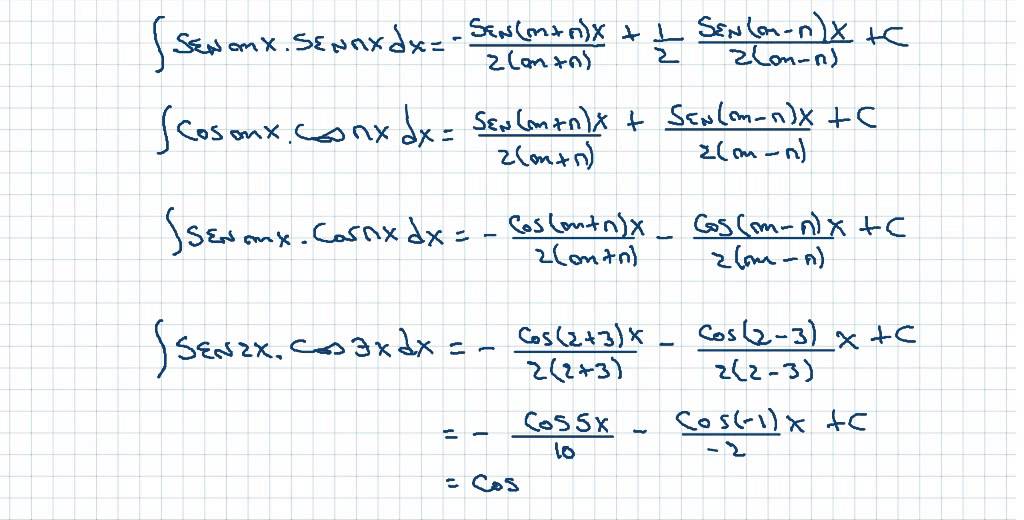 ∫ SEN mx . SEN nx dx = - SEN(m+n)x / 2(m+n) + 1/2 SEN(m-n)x / 2(m-n) + C
∫ Cos mx . cos nx dx = SEN(m+n)x / 2(m+n) + SEN(m-n)x / 2(m-n) + C
∫ SEN mx . Cos nx dx = - Cos(m+n)x / 2(m+n) - Cos(m-n)x / 2(m-n) + C
∫ SEN 2x . cos 3x dx = - Cos(2+3)x / 2(2+3) - Cos(2-3) / 2(2-3) x + C
= - Cos 5x / 10 - Cos(-1) / -2 x + C
= Cos